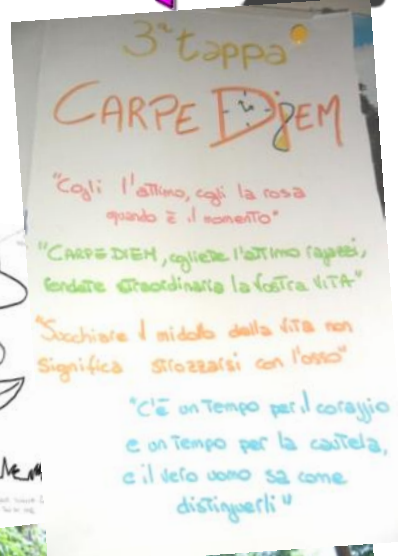 3ª tappa
CARPE DIEM
"Cogli l'attimo, cogli la rosa
quando è il momento"
"CARPE DIEM, cogliete l'attimo ragazzi,
rendete straordinaria la vostra vita"
"Succhiare il midollo dalla vita non
significa strozzarsi con l'osso"
"C'è un tempo per il coraggio
e un tempo per la cautela,
e il vero uomo sa come
distinguerli"